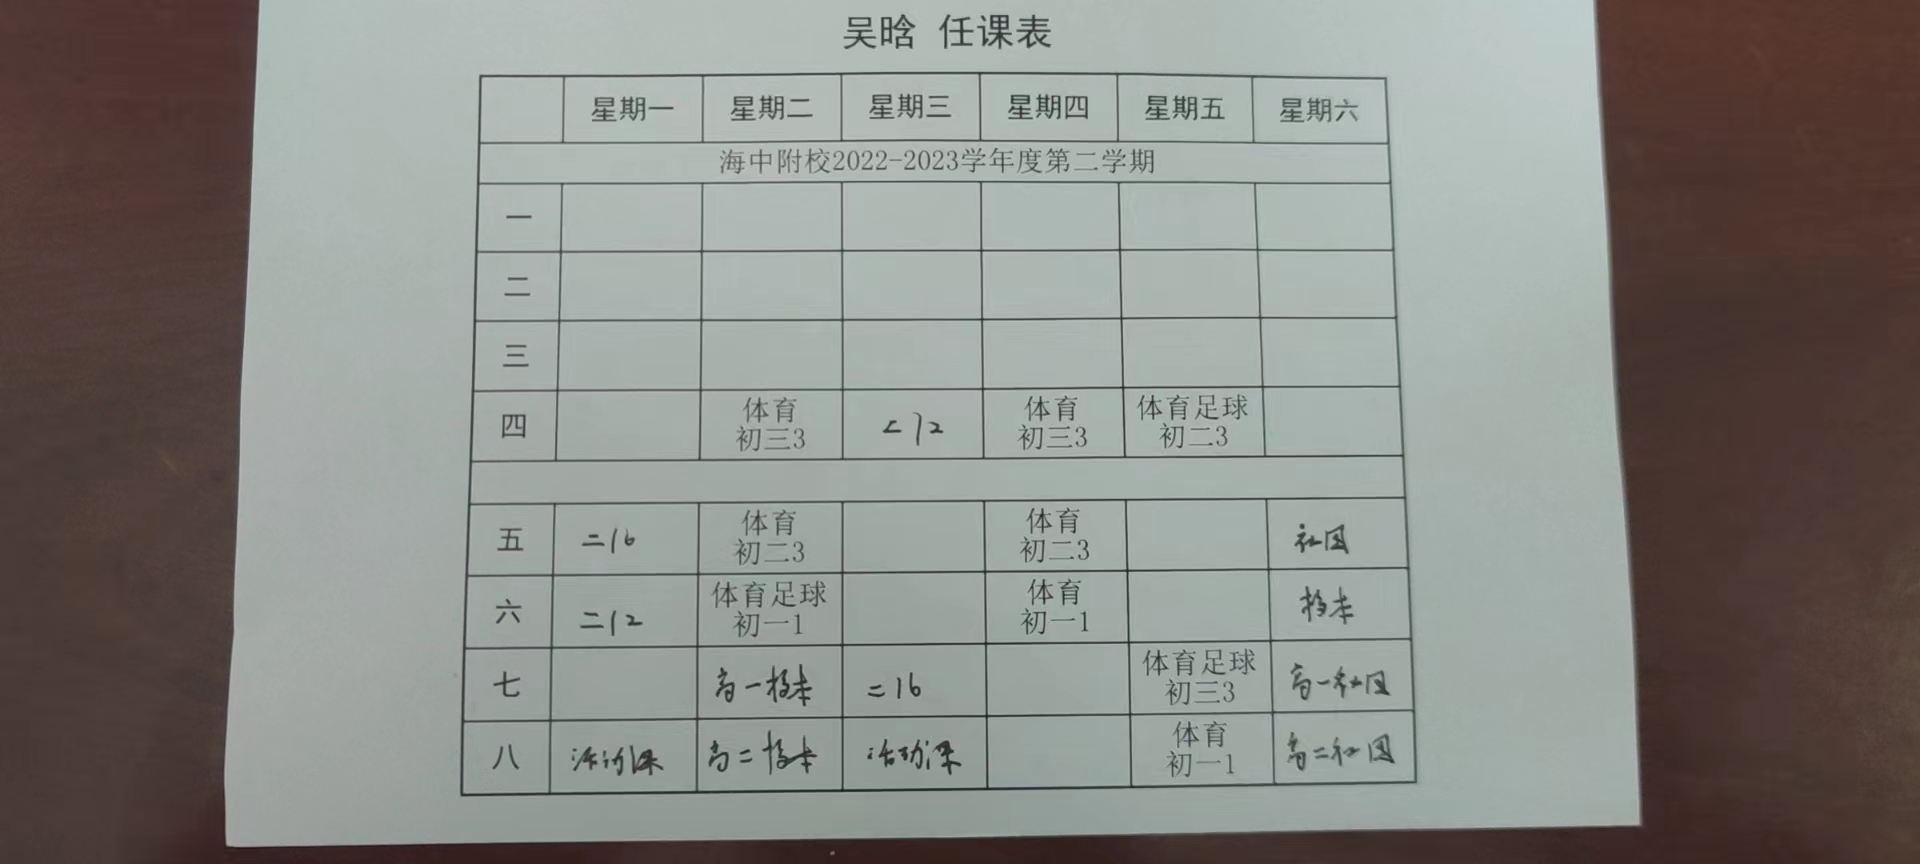 吴晗 任课表
星期一 星期二 星期三 星期四 星期五 星期六
海中附校2022-2023学年度第二学期
一
二
三
四 体育 初三3 二12 体育 初三3 体育足球 初二3
五 二16 体育 初二3 体育 初二3 社团
六 二12 体育足球 初一1 体育 初一1 校本
七 高一校本 二16 体育足球 初三3 高一社团
八 活动课 高二校本 活动课 体育 初一1 高二社团